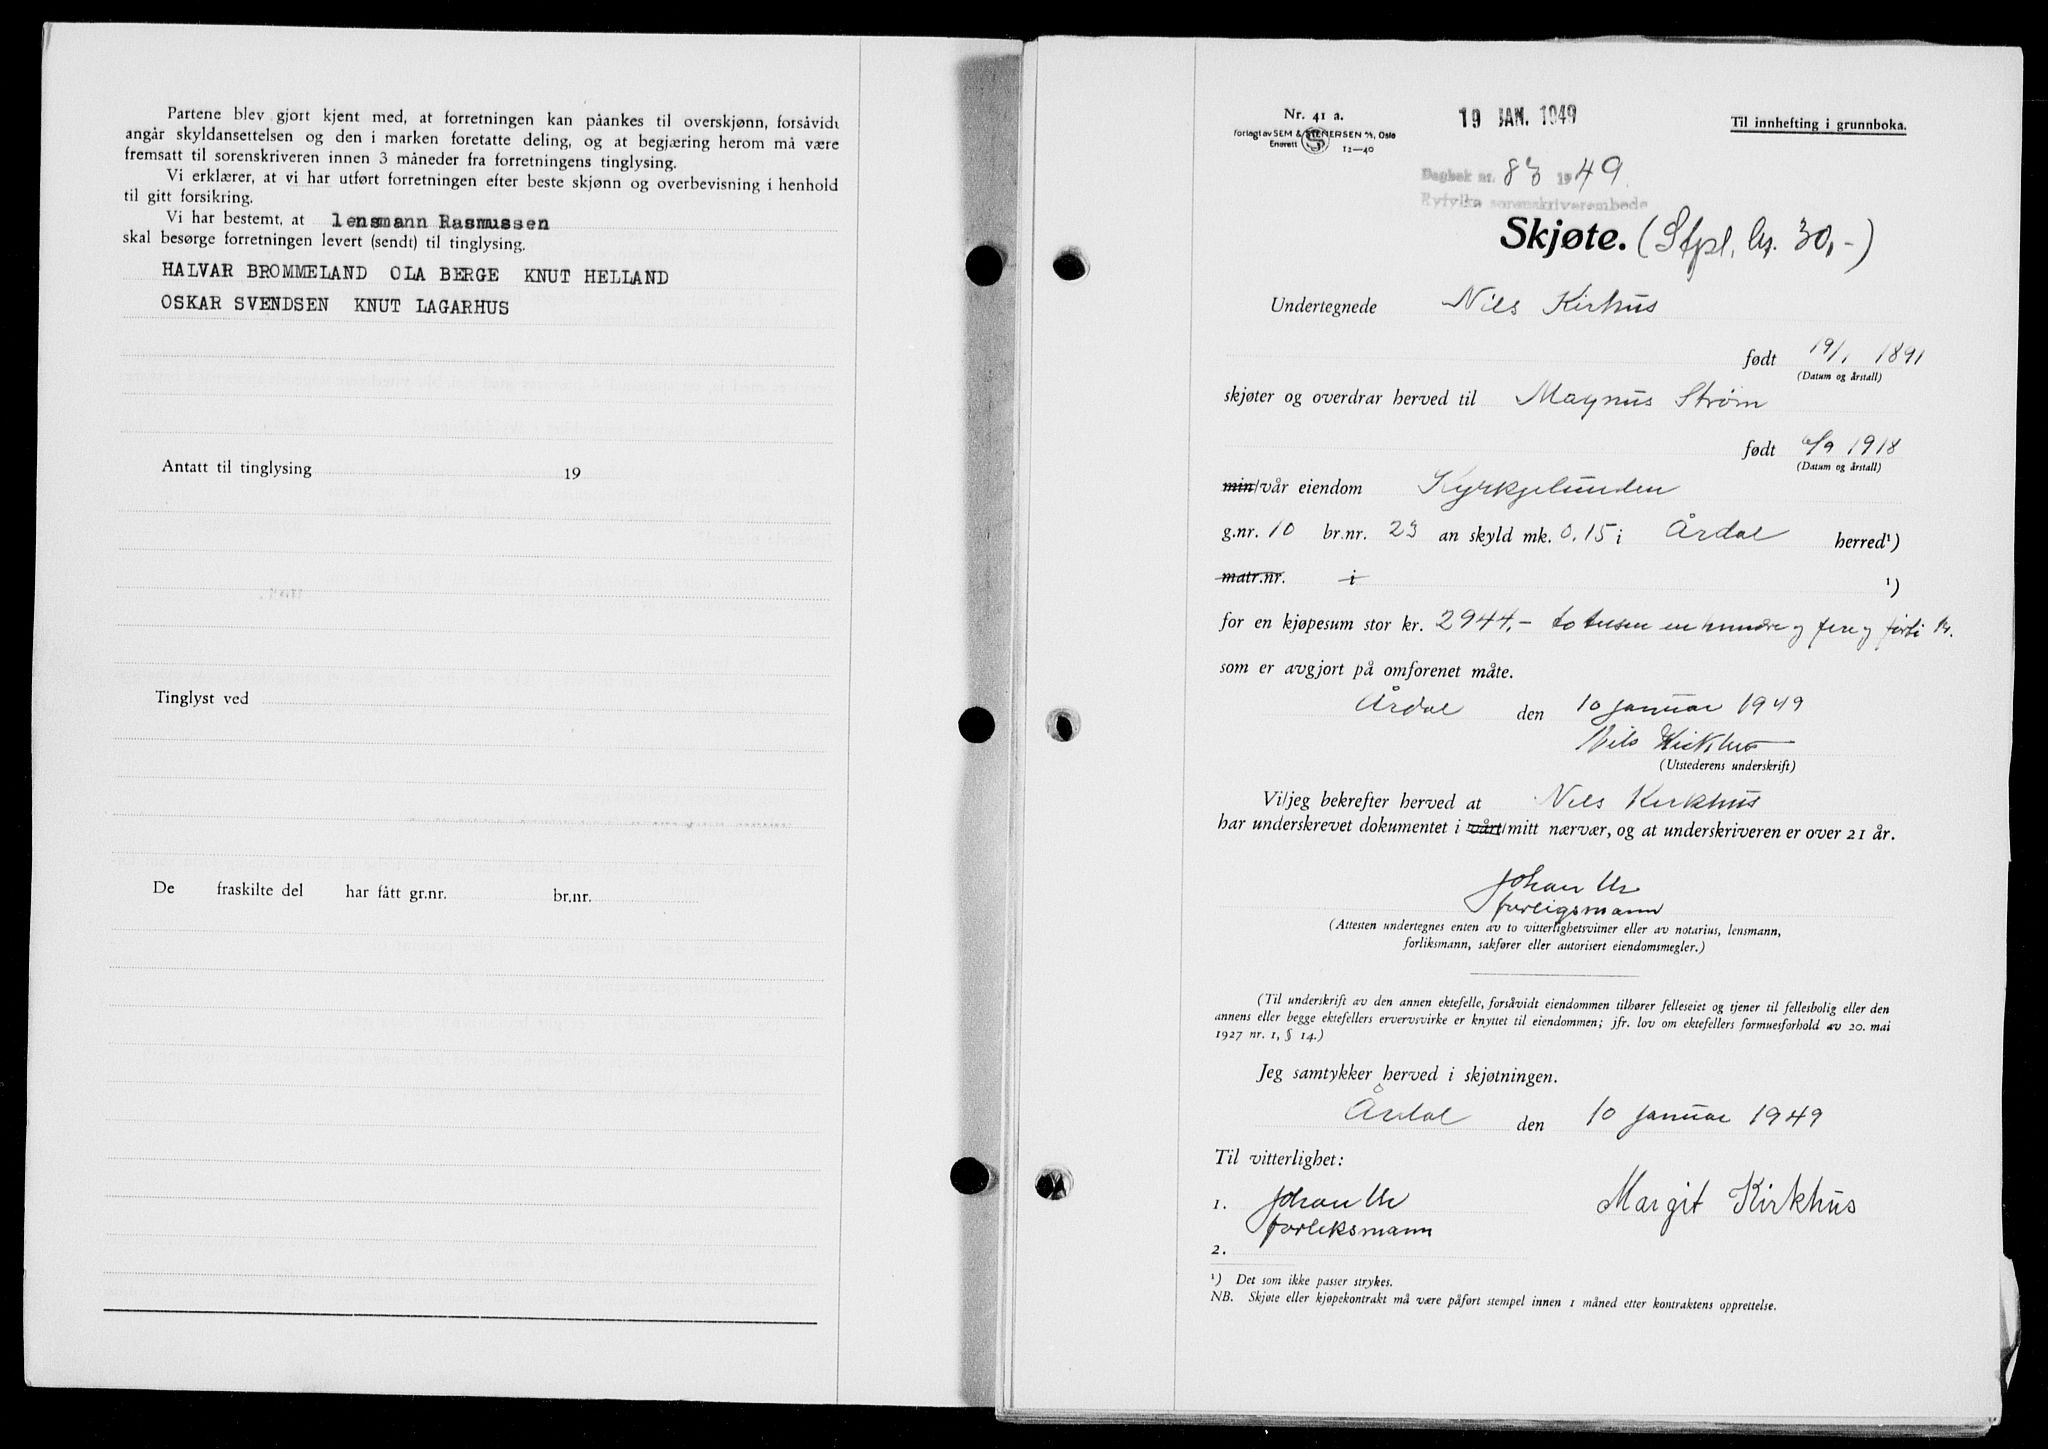 Partene blev gjort kjent med, at forretningen kan påankes til overskjønn, forsåvidt
angår skyldansettelsen og den i marken foretatte deling, og at begjæring herom må være
fremsatt til sorenskriveren innen 3 måneder fra forretningens tinglysing.
Vi erklærer, at vi har utført forretningen efter beste skjønn og overbevisning i henhold
til gitt forsikring.
Vi har bestemt, at lensmann Rasmussen
skal besørge forretningen levert (sendt) til tinglysing.
HALVAR BROMMELAND OLA BERGE KNUT HELLAND
OSKAR SVENDSEN KNUT LAGARHUS
Antatt til tinglysing 19
Tinglyst ved
De fraskilte del har fått gr.nr. br.nr.
Nr. 41 a.
Forlagt av SEM & STENERSEN A/S, Oslo
Enerett 12—40
19 JAN. 1949
Til innhefting i grunnboka.
Dagbok nr. 83 1949.
Ryfylke sorenskriverembede
Skjøte. (Stpl. kr. 30,-)
Undertegnede Nils Kirkhus
født 19/1 1891
(Datum og årstall)
skjøter og overdrar herved til Magnus Strøm
født 6/9 1918
(Datum og årstall)
min/vår eiendom Kyrkjelunden
g.nr. 10 br.nr. 23 an skyld mk. 0.15 i Årdal herred¹)
matr.nr. i ¹)
for en kjøpesum stor kr. 2944,- to tusen en hundre og fire og førti kr.
som er avgjort på omforenet måte.
Årdal den 10 januar 1949
Nils Kirkhus
(Utstederens underskrift)
Vi/jeg bekrefter herved at Nils Kirkhus
har underskrevet dokumentet i vårt/mitt nærvær, og at underskriveren er over 21 år.
Johan Ur
forligsmann
(Attesten undertegnes enten av to vitterlighetsvitner eller av notarius, lensmann,
forliksmann, sakfører eller autorisert eiendomsmegler.)
(Til underskrift av den annen ektefelle, forsåvidt eiendommen tilhører felleseiet og tjener til fellesbolig eller den
annens eller begge ektefellers ervervsvirke er knyttet til eiendommen; jfr. lov om ektefellers formuesforhold av 20. mai
1927 nr. 1, § 14.)
Jeg samtykker herved i skjøtningen.
Årdal den 10 januar 1949
Til vitterlighet:
1. Johan Ur Margit Kirkhus
forliksmann
2.
¹) Det som ikke passer strykes.
NB. Skjøte eller kjøpekontrakt må være påført stempel innen 1 måned etter kontraktens opprettelse.